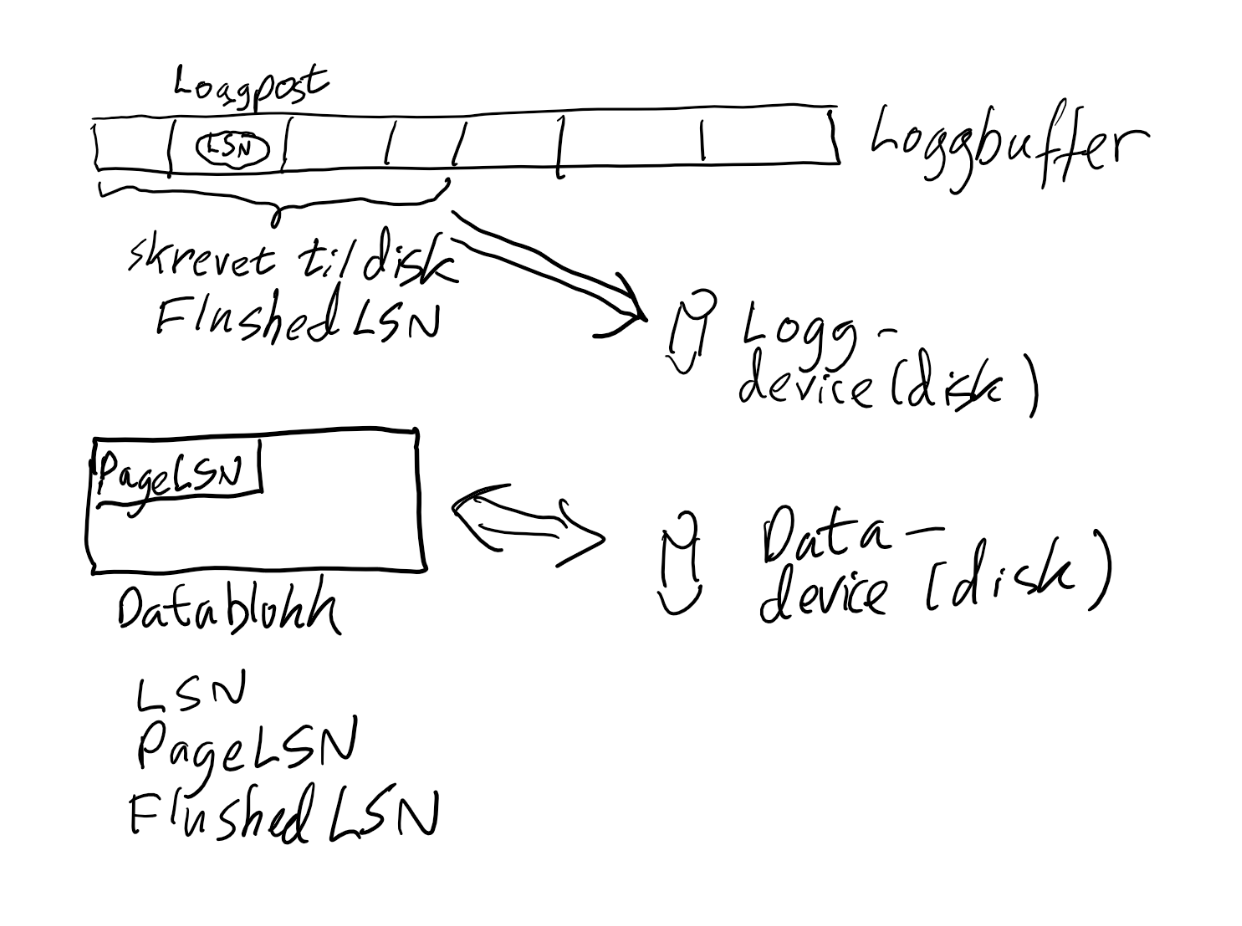 Loggpost
LSN
Loggbuffer
skrevet til disk
FlushedLSN
Logg-
device (disk)
PageLSN
Data-
device (disk)
Datablokk
LSN
PageLSN
FlushedLSN